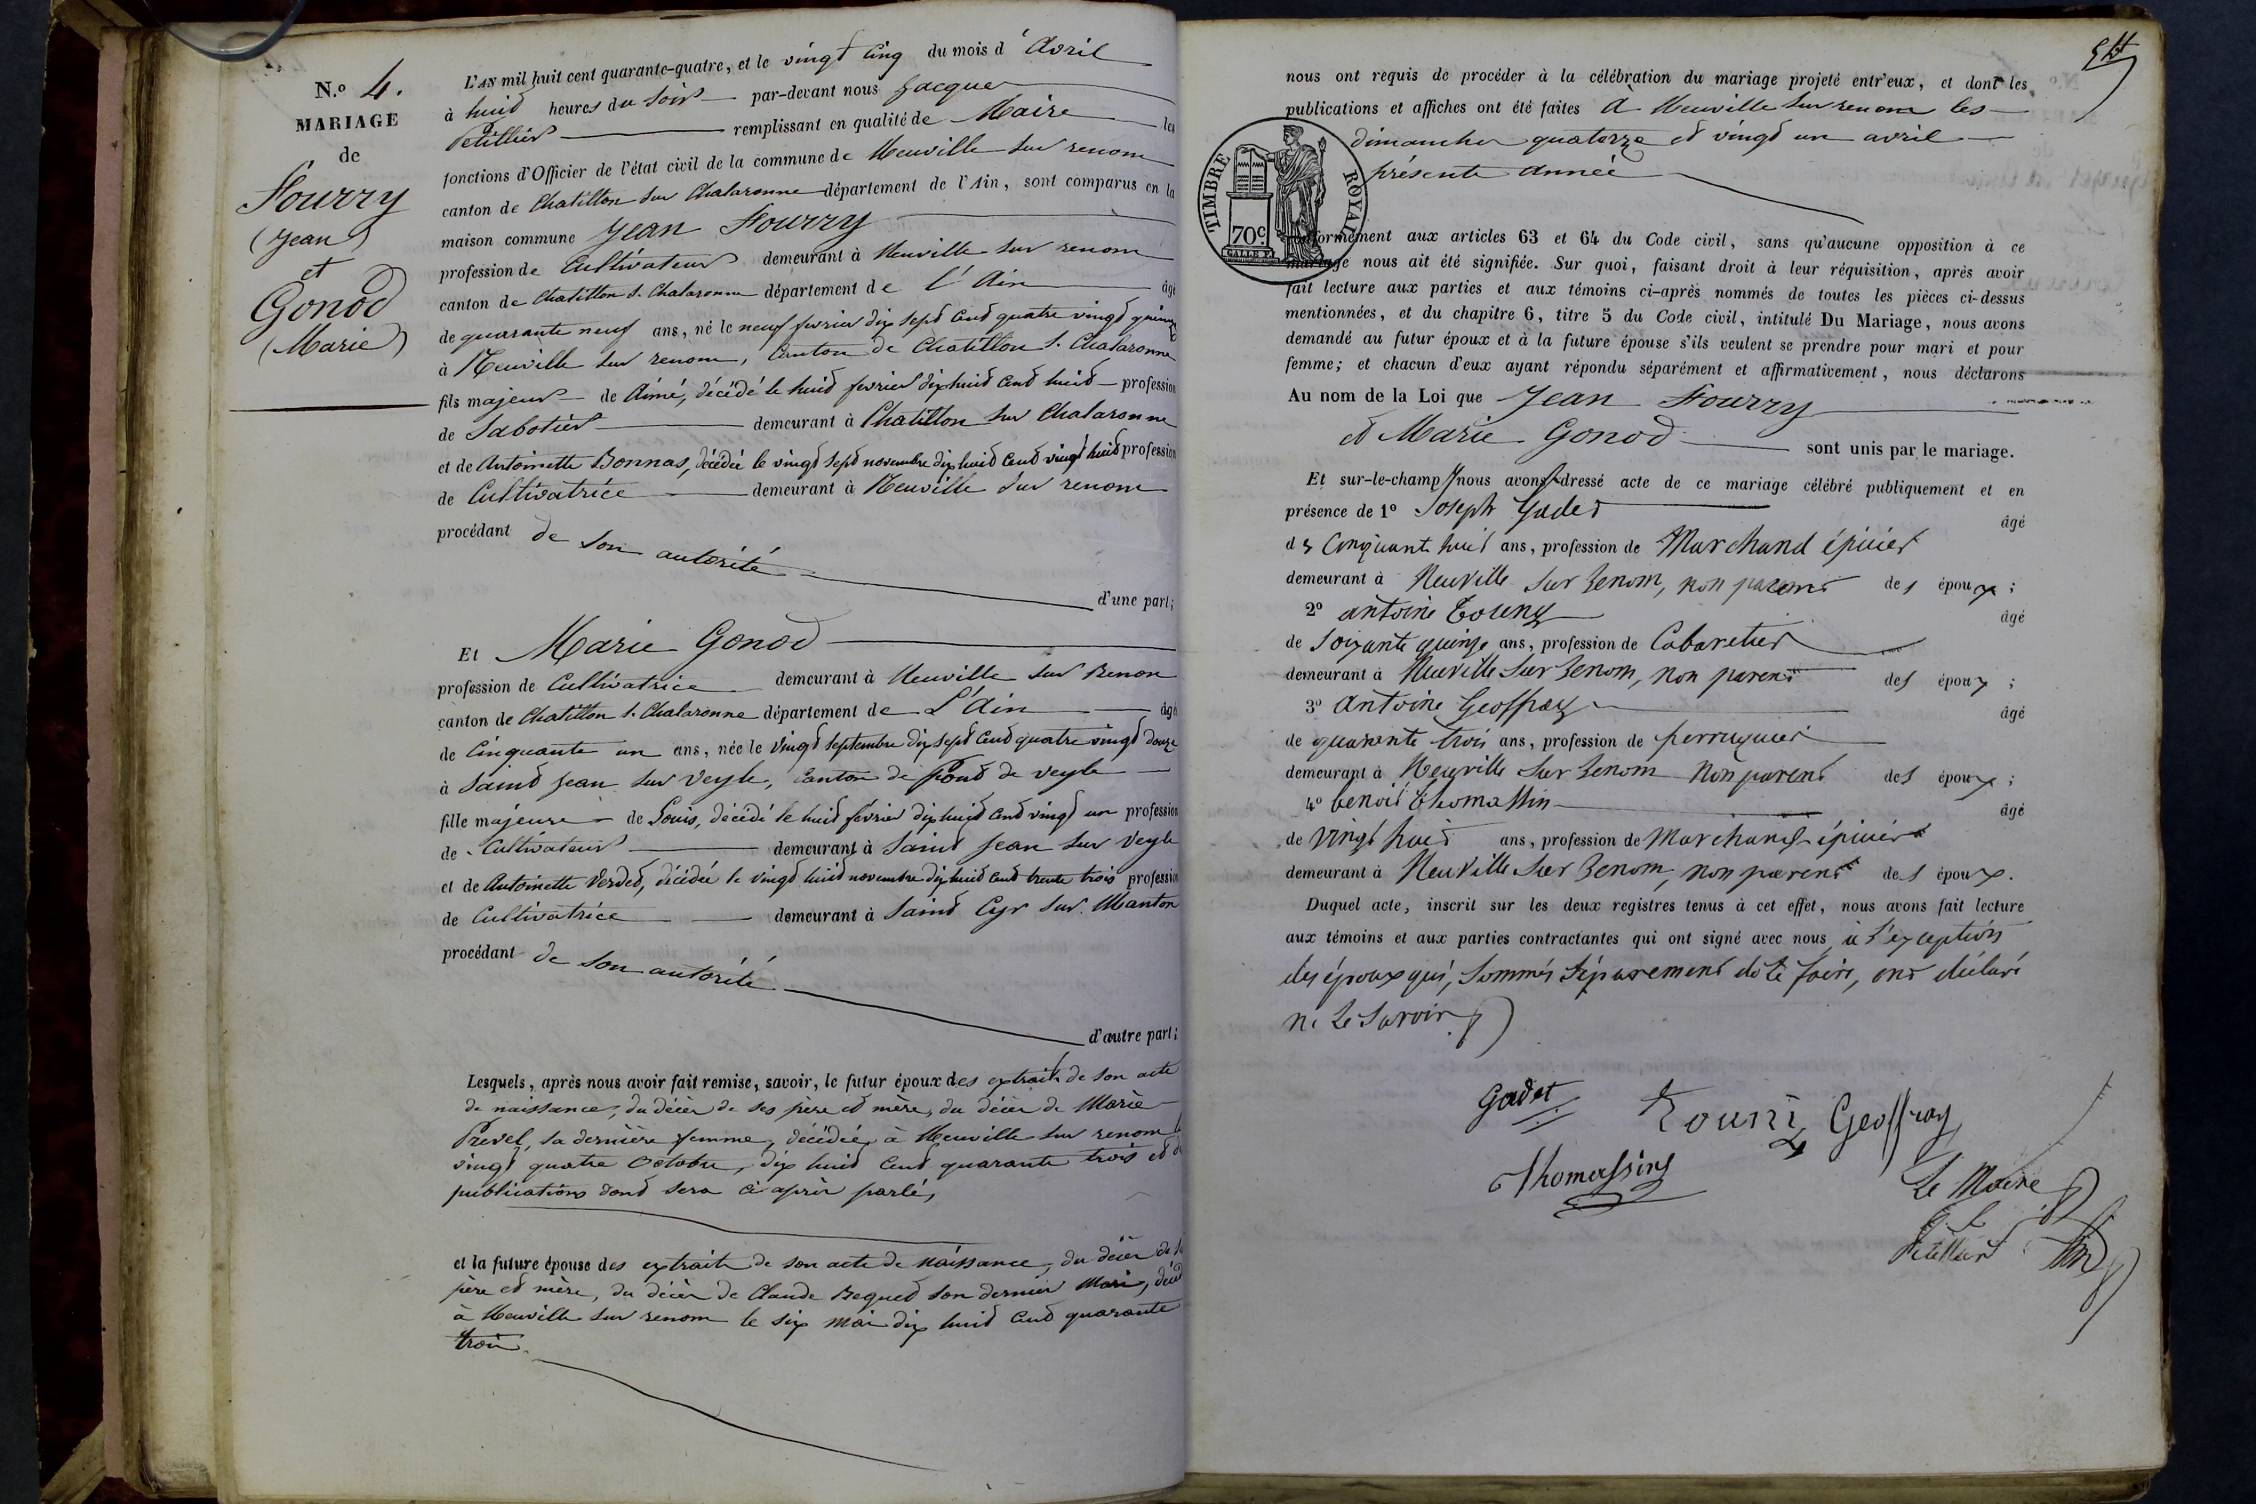 N.º 4.
MARIAGE
de
Fourry
(Jean)
et
Gonod
(Marie)
L'AN mil huit cent quarante-quatre, et le vingt cinq du mois d'Avril
à huit heures du soir par-devant nous Jacque
Petillier remplissant en qualité de Maire les
fonctions d'Officier de l'état civil de la commune de Neuville sur renom
canton de Chatillon sur Chalaronne département de l'Ain, sont comparus en la
maison commune Jean Fourry
profession de Cultivateur demeurant à Neuville sur renom
canton de Chatillon s. Chalaronne département de L'Ain âgé
de quarante neuf ans, né le neuf fevrier dix sept cent quatre vingt quinze
à Neuville sur renom, Canton de Chatillon s. Chalaronne
fils majeur de Aimé, décédé le huit fevrier dix huit cent huit profession
de Sabotier demeurant à Chatillon sur Chalaronne
et de Antoinette Bonnas, décédée le vingt sept novembre dix huit cent vingt huit profession
de Cultivatrice demeurant à Neuville sur renom
procédant de son autorité
d'une part;
Et Marie Gonod
profession de Cultivatrice demeurant à Neuville sur Renon
canton de Chatillon s. Chalaronne département de L'Ain âgé
de Cinquante un ans, née le vingt septembre dix sept cent quatre vingt douze
à Saint Jean sur Veyle, Canton de Pont de veyle
fille majeure de Louis, décédé le huit février dix huit cent vingt un profession
de Cultivateur demeurant à Saint Jean sur Veyle
et de Antoinette Verdet, décédée le vingt huit novembre dix huit cent trente trois profession
de Cultivatrice demeurant à Saint Cyr sur Manton
procédant de son autorité
d'autre part;
Lesquels, après nous avoir fait remise, savoir, le futur époux des extraits de son acte
de naissance, du décès de ses père et mère, du décès de Marie
Prevel, sa dernière femme, décédée à Neuville sur renom le
vingt quatre Octobre, dix huit cent quarante trois et
publications dont sera ci après parlé,
et la future épouse des extraits de son acte de naissance, du décès de
père et mère, du décès de Claude Bequet son dernier Mari, décédé
à Neuville sur renom le six mai dix huit cent quarante
trois
nous ont requis de procéder à la célébration du mariage projeté entr'eux, et dont les
publications et affiches ont été faites à Neuville sur renom les
dimanches quatorze et vingt un avril
présente année
TIMBRE ROYAL
70 C.
conformément aux articles 63 et 64 du Code civil, sans qu'aucune opposition à ce
mariage nous ait été signifiée. Sur quoi, faisant droit à leur réquisition, après avoir
fait lecture aux parties et aux témoins ci-après nommés de toutes les pièces ci-dessus
mentionnées, et du chapitre 6, titre 5 du Code civil, intitulé Du Mariage, nous avons
demandé au futur époux et à la future épouse s'ils veulent se prendre pour mari et pour
femme; et chacun d'eux ayant répondu séparément et affirmativement, nous déclarons
Au nom de la Loi que Jean Fourry
et Marie Gonod sont unis par le mariage.
Et sur-le-champ nous avons dressé acte de ce mariage célébré publiquement et en
présence de 1º Joseph Gadet âgé
de Cinquante huit ans, profession de Marchand épicier
demeurant à Neuville sur Renom, non parent des époux;
2º antoine Touny âgé
de Soixante quinze ans, profession de Cabaretier
demeurant à Neuville sur Renom, non parent des époux;
3º Antoine Geoffray âgé
de quarante trois ans, profession de perruquier
demeurant à Neuville sur Renom Non parent des époux;
4º benoit Thomassin âgé
de vingt huit ans, profession de Marchand épicier
demeurant à Neuville sur Renom, non parent des époux.
Duquel acte, inscrit sur les deux registres tenus à cet effet, nous avons fait lecture
aux témoins et aux parties contractantes qui ont signé avec nous à l'exception
des époux qui, sommés séparement de le faire, ont déclaré
ne le savoir
Gadet Touni Geoffray
Thomassin
Le Maire
Petillier